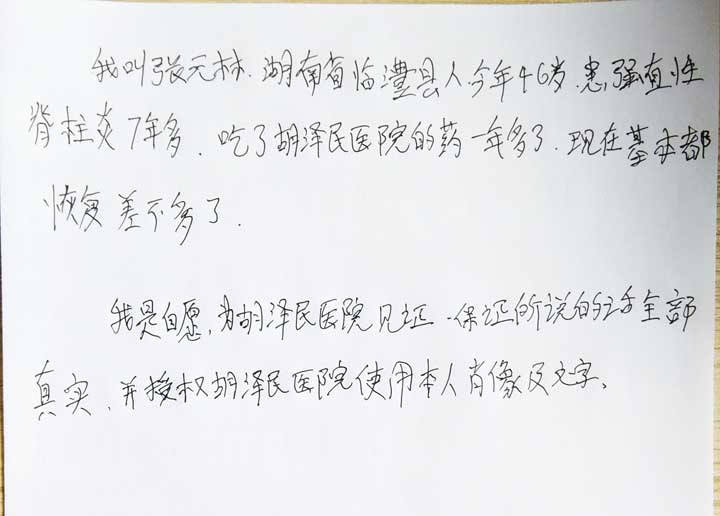 我叫张元林.湖南省临澧县人今年46岁.患强直性
脊柱炎7年多.吃了胡泽民医院的药一年多了.现在基本都
恢复差不多了.
我是自愿,为胡泽民医院见证.保证所说的话全部
真实.并授权胡泽民医院使用本人肖像及文字。